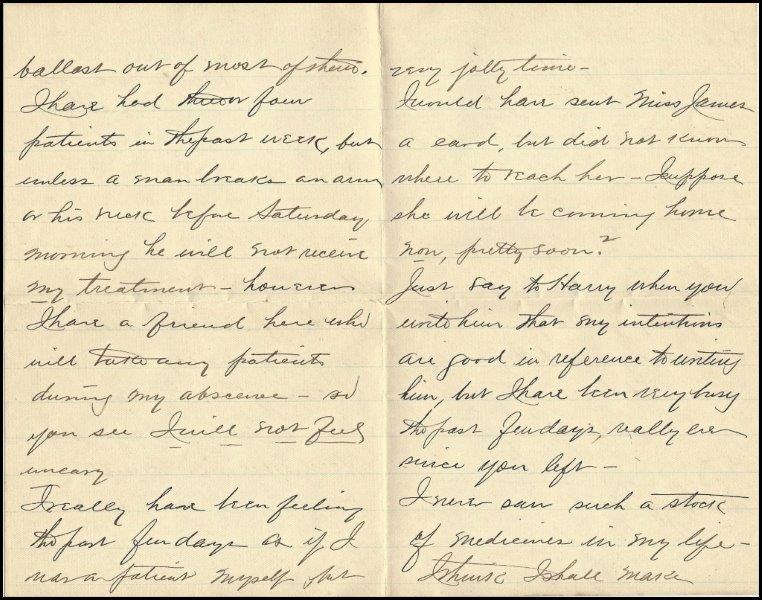 ballast out of most of them.
I have had three or four
patients in the past week, but
unless a man breaks an arm
or his neck before Saturday
morning he will not receive
my treatment – however
I have a friend here who
will take any patients
during my absence – so
you see I will not feel
uneasy
I really have been feeling
the past few days as if I
was a patient myself but
very jolly time –
I would have sent Miss James
a card, but did not know
where to reach her – I suppose
she will be coming home
now, pretty soon?
Just say to Harry when you
write him that my intentions
are good in reference to writing
him, but I have been very busy
the past few days, really ever
since you left –
I never saw such a stock
of medicines in my life –
I think I shall make